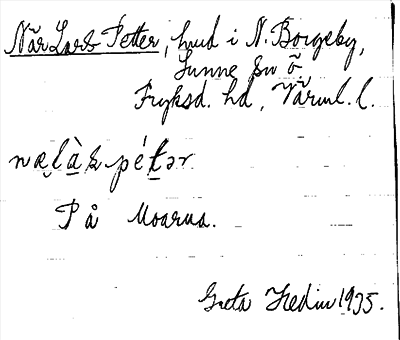 När Lars Petter, hmd i N. Borgeby,
Sunne sn Ö.
Fryksd. hd, Värml. l.
næl̀ạ̀s pét̠ər
På Moarna.
Greta Hedin 1935.